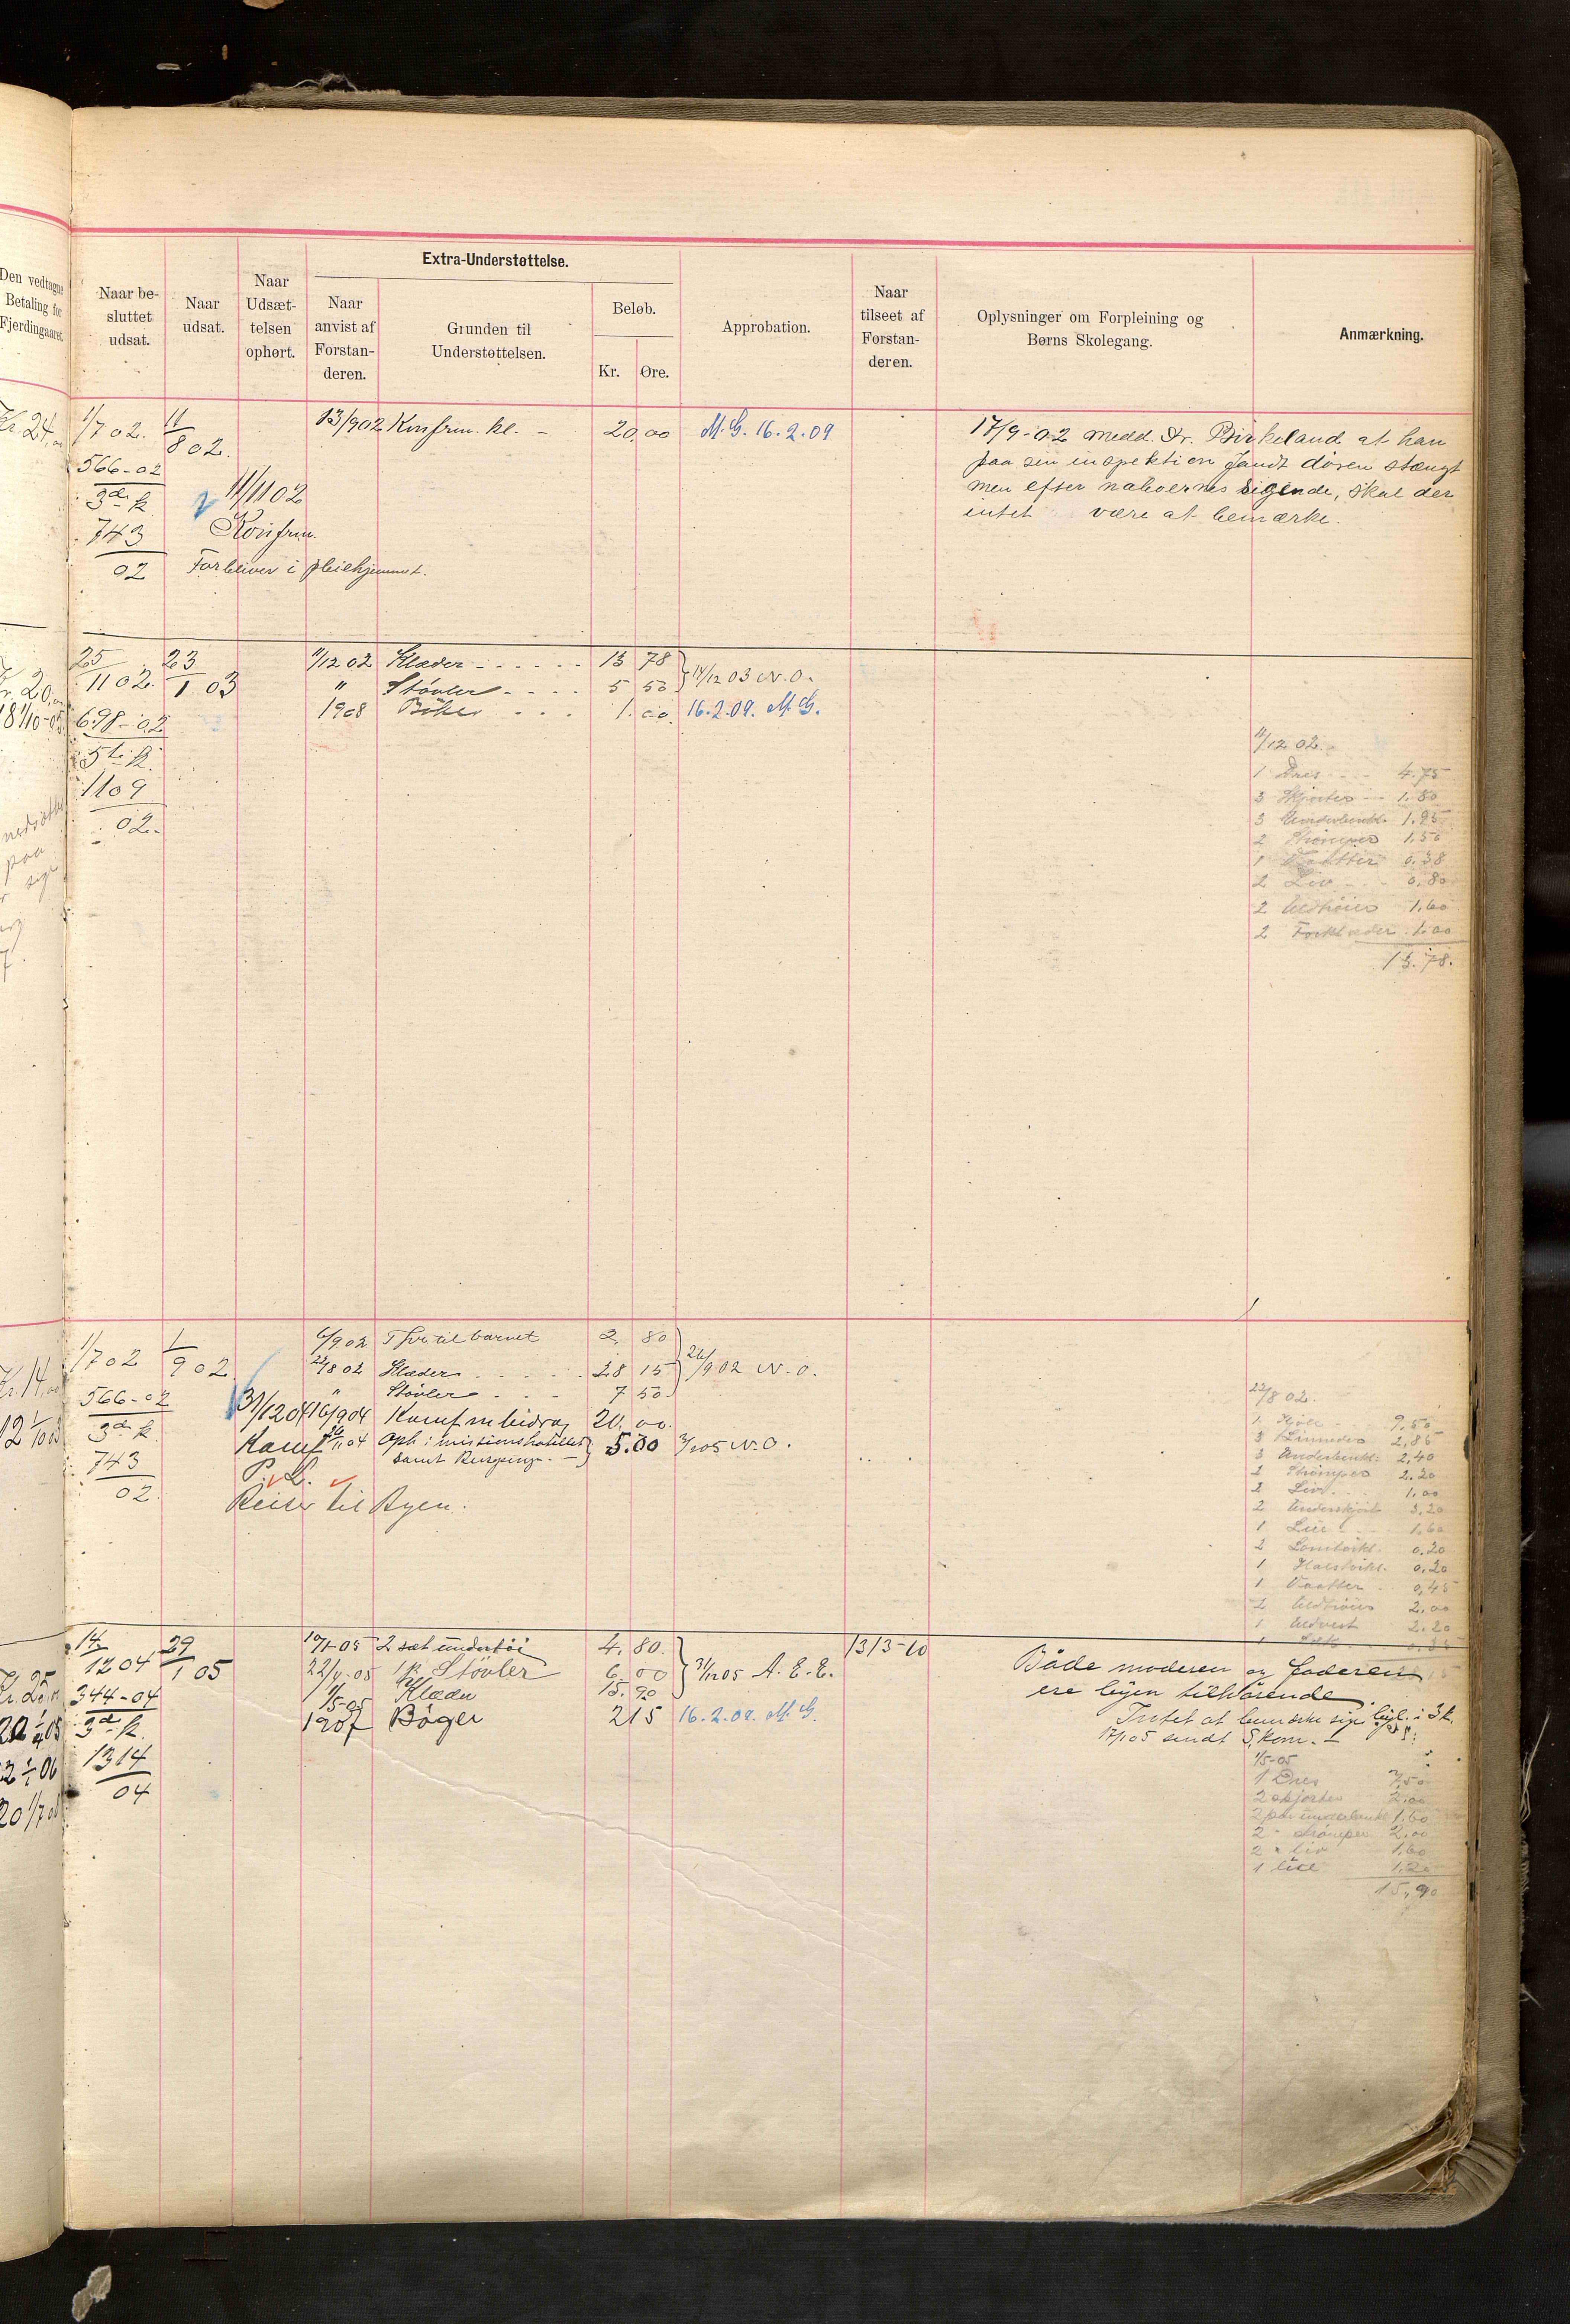 Den vedtagne
Betaling for
Fjerdingaaret.
Naar be-
sluttet
udsat.
Naar
udsat.
Naar
Udsæt-
telsen
ophørt.
Extra-Understøttelse.
Naar
anvist af
Forstan-
deren.
Grunden til
Understøttelsen.
Beløb.
Kr. Øre.
Approbation.
Naar
tilseet af
Forstan-
deren.
Oplysninger om Forpleining og
Børns Skolegang.
Anmærkning.
Kr. 24,00
1/7 02. 11/8 02. 13/9 02 Konfrm. kl. - 20,00 M. G. 16.2.09
566-02
3de k.
743
02
11/11 02
Konfrm.
Forbliver i pleiehjemmet.
17/9-02 medd. Hr. Birkeland at han
paa sin inspektion fandt døren stængt
men efter naboernes sigende, skal der
intet være at bemærke.
25/11 02. 23/1 03 11/12 02 Klæder - - - - - - 13 78 } 14/12 03 N.O.
" Støvler - - - - 5 50
1908 Bøker - - - 1.00. 16.2.09. M. G.
Kr. 20,00
698-02
5te k.
1109
02.
nedsætte
paa
11/12 02.
1 Dres - - 4.75
3 Skjorter - - 1.80
3 Underbenkl. 1.95
2 Strømper 1.50
1 Vaatter 0.38
2 Liv - - 0,80
2 Uldtrøier 1,60
2 Forklæder 1.00
13.78.
Kr. 14,00
1/7 02 1/9 02 6/9 02 Tøi til barnet 2. 80 } 26/9 02 N.O.
22/8 02 Klæder - - - - - 28 15
" Støvler - - - 7 50
566-02
3de k.
743
02.
31/12 04 16/9 04 Konf m bidrag 20.00.
Konf 26/11 04 Oph i missionshotellet } 5.00 3/1 05 N.O.
samt Reisepenge. -
P. L.
Reiser til Byen.
22/8 02.
1 Kjole - 9,50
3 Linneder 2,85
3 Underbenkl. 2,40
2 Strømper 2.20
2 Liv - - 1,00
2 Underskjørt 3,20
1 Lue - - 1,60
2 Lomtørkl. 0.20
1 Halstørkl. 0,20
1 Vaatter - 0,45
2 Uldtrøier 2,00
1 Uldvest 2.20
14/12 04 29/1 05 19/1-05 2 sæt undertøi 4,80. } 31/12 05 A. E. E. 13/3-10
22/4-05 1 p. Støvler 6,00
1/5-05 Klæder 15.90
1907 Bøger 215 16.2.09. M. G.
Kr. 25,00
344-04
3de k.
1314
04
Både moderen og faderen
ere byen tilhørende.
Intet at bemærke sig beyl. i 3 k.
17/1 05 sendt S,kom. -
1/5-05
1 Dres 7,50
2 skjorter 2,00
2 par underbenkl 1,60
2 " Strømper 2,00
2 " liv 1,60
1 lue 1,20
15,90